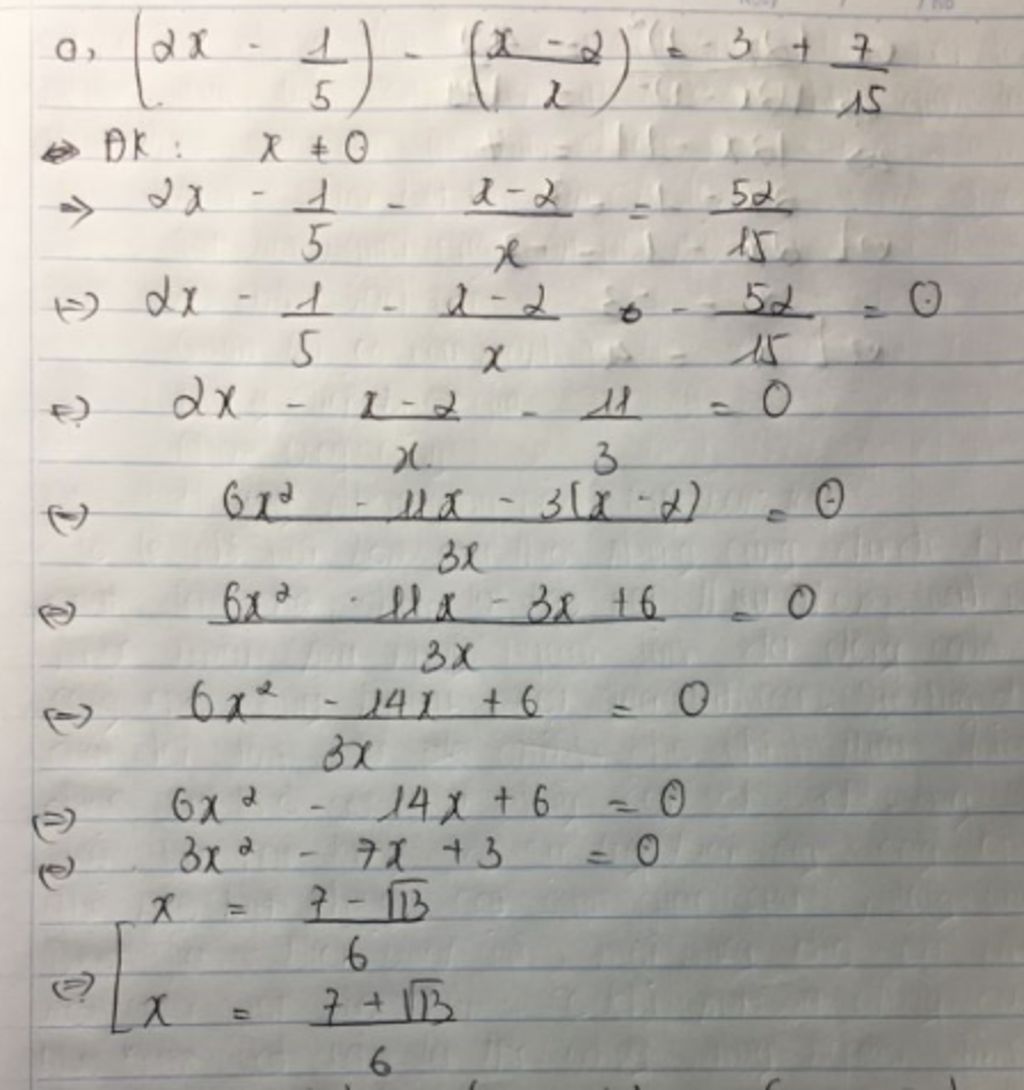 a, (2x - 1/5) - (x - 2/x) = 3 + 7/15
⇔ ĐK: x ≠ 0
=> 2x - 1/5 - x-2/x = 52/15
(=) 2x - 1/5 - x-2/x - 52/15 = 0
(=) 2x - x-2/x - 11/3 = 0
(=) 6x² - 11x - 3(x-2)/3x = 0
(=) 6x² - 11x - 3x + 6/3x = 0
(=) 6x² - 14x + 6/3x = 0
(=) 6x² - 14x + 6 = 0
(=) 3x² - 7x + 3 = 0
x = 7 - √13/6
(=) [
x = 7 + √13/6